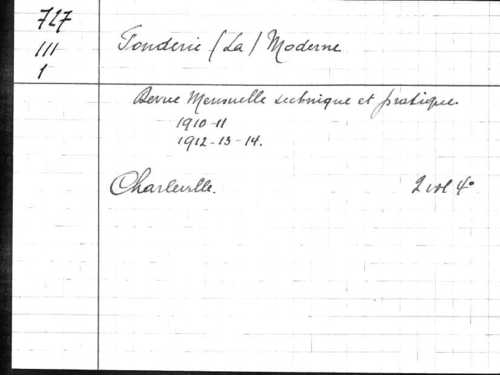 727
III
1
Fonderie (La) Moderne
Revue Mensuelle technique et pratique.
1910-11
1912-13-14.
Charleville.
2 vol 4°